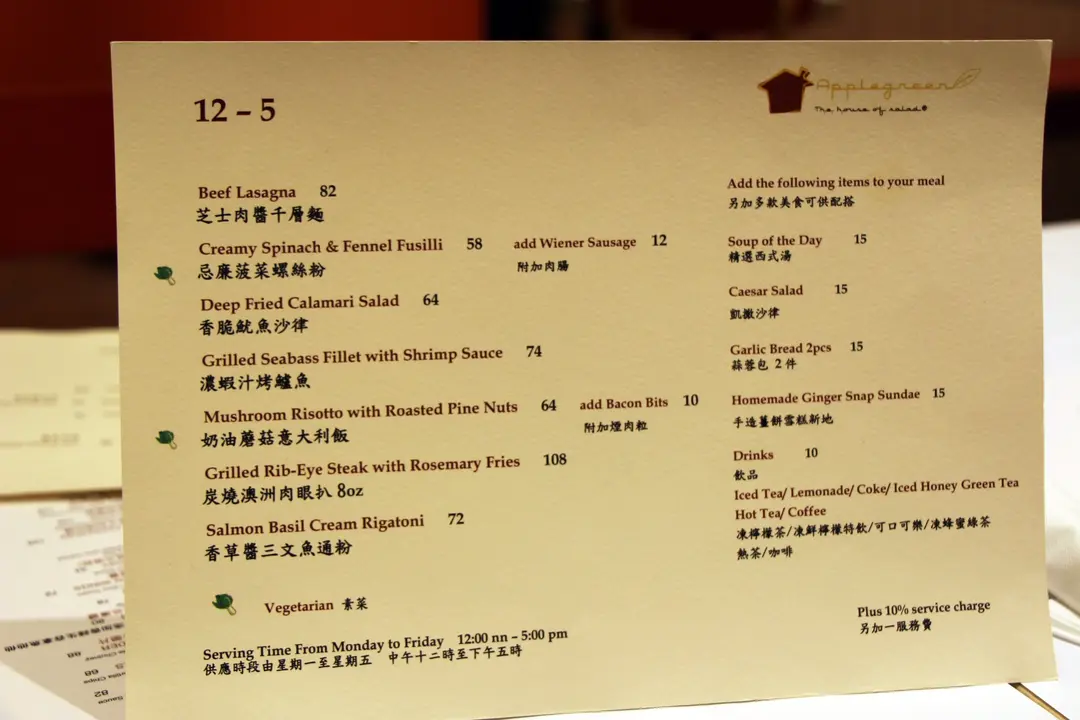 12 – 5
Applegreen
The house of salad
Beef Lasagna 82
芝士肉醬千層麵
Creamy Spinach & Fennel Fusilli 58 add Wiener Sausage 12
忌廉菠菜螺絲粉 附加肉腸
Deep Fried Calamari Salad 64
香脆魷魚沙律
Grilled Seabass Fillet with Shrimp Sauce 74
濃蝦汁烤鱸魚
Mushroom Risotto with Roasted Pine Nuts 64 add Bacon Bits 10
奶油蘑菇意大利飯 附加煙肉粒
Grilled Rib-Eye Steak with Rosemary Fries 108
炭燒澳洲肉眼扒 8oz
Salmon Basil Cream Rigatoni 72
香草醬三文魚通粉
Vegetarian 素菜
Serving Time From Monday to Friday 12:00 nn – 5:00 pm
供應時段由星期一至星期五 中午十二時至下午五時
Add the following items to your meal
另加多款美食可供配搭
Soup of the Day 15
精選西式湯
Caesar Salad 15
凱撒沙律
Garlic Bread 2pcs 15
蒜蓉包 2 件
Homemade Ginger Snap Sundae 15
手造薑餅雪糕新地
Drinks 10
飲品
Iced Tea/ Lemonade/ Coke/ Iced Honey Green Tea
Hot Tea/ Coffee
凍檸檬茶/凍鮮檸檬特飲/可口可樂/凍蜂蜜綠茶
熱茶/咖啡
Plus 10% service charge
另加一服務費